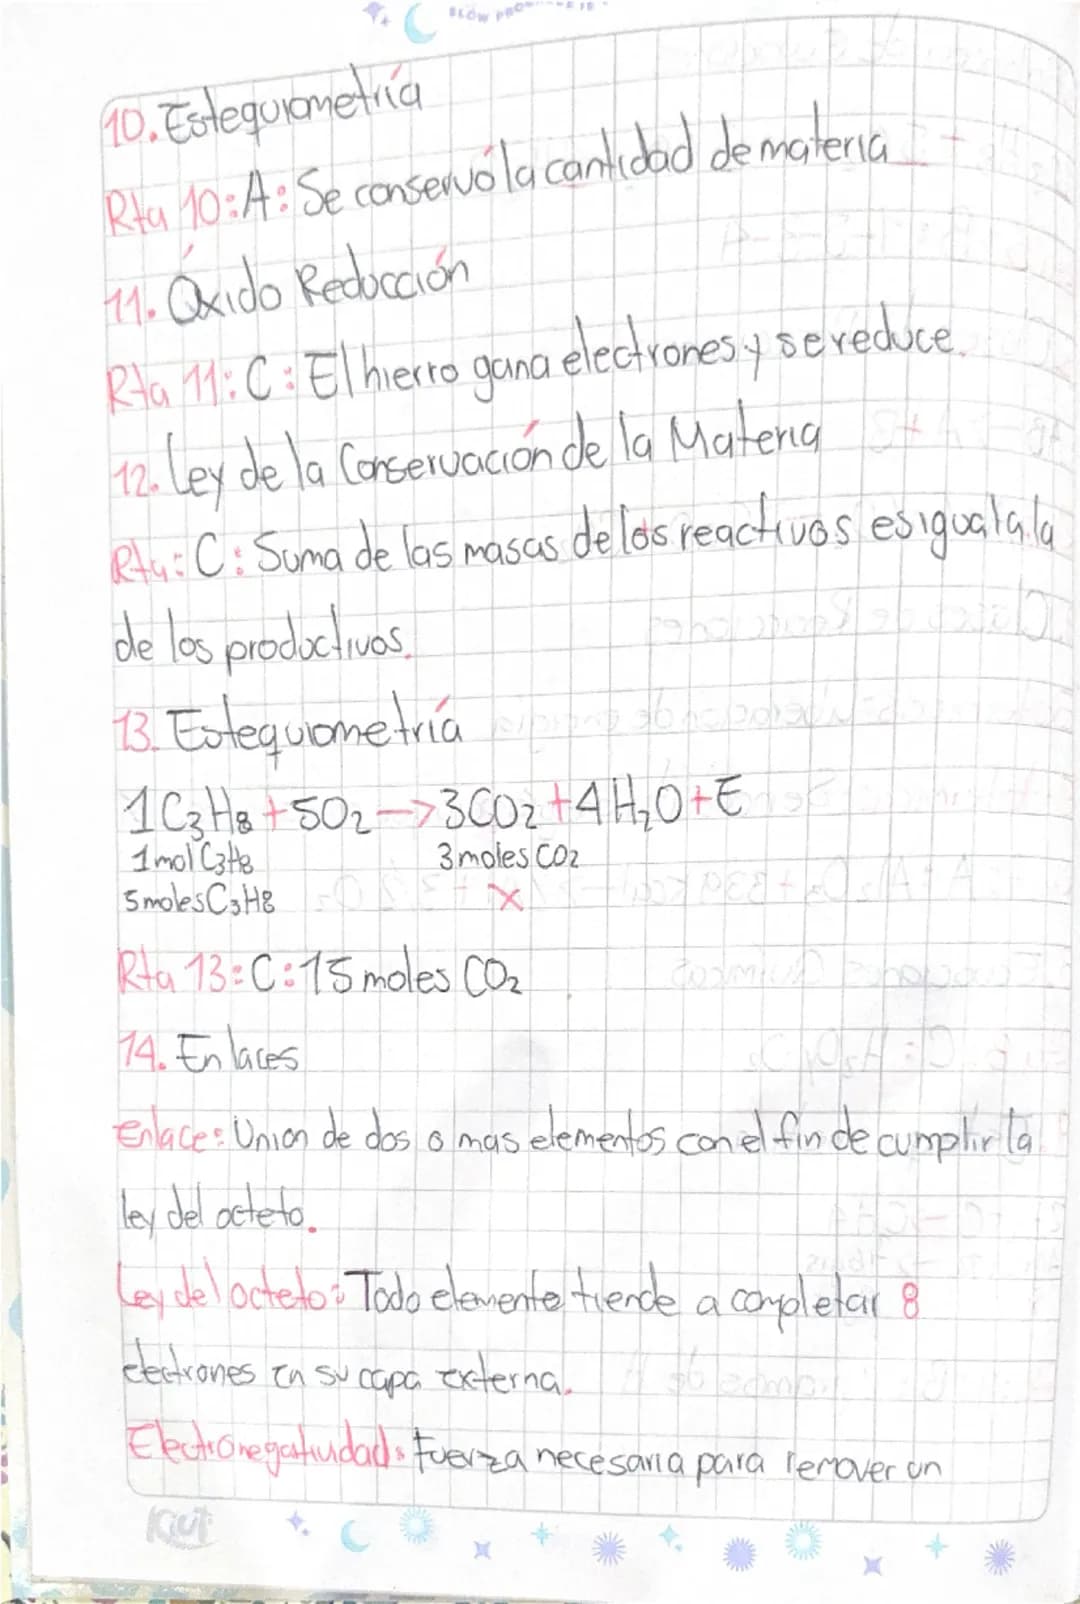 10. Estequiometría
Rta 10: A: Se conservó la cantidad de materia
11. Óxido Reducción
Rta 11: C: El hierro gana electrones y se reduce.
12. Ley de la Conservación de la Materia
Rta: C: Suma de las masas de los reactivos es igual a la
de los productivos.
13. Estequiometría
1C₃H₈ + 5O₂ —> 3CO₂ + 4H₂O + E
1mol C₃H₈ 3 moles CO₂
5 moles C₃H₈ X
Rta 13: C: 15 moles CO₂
14. Enlaces
Enlace: Union de dos o mas elementos con el fin de cumplir la
ley del octeto.
Ley del octeto: Todo elemento tiende a completar 8
electrones en su capa externa.
Electronegatividad: fuerza necesaria para remover un
Kiut